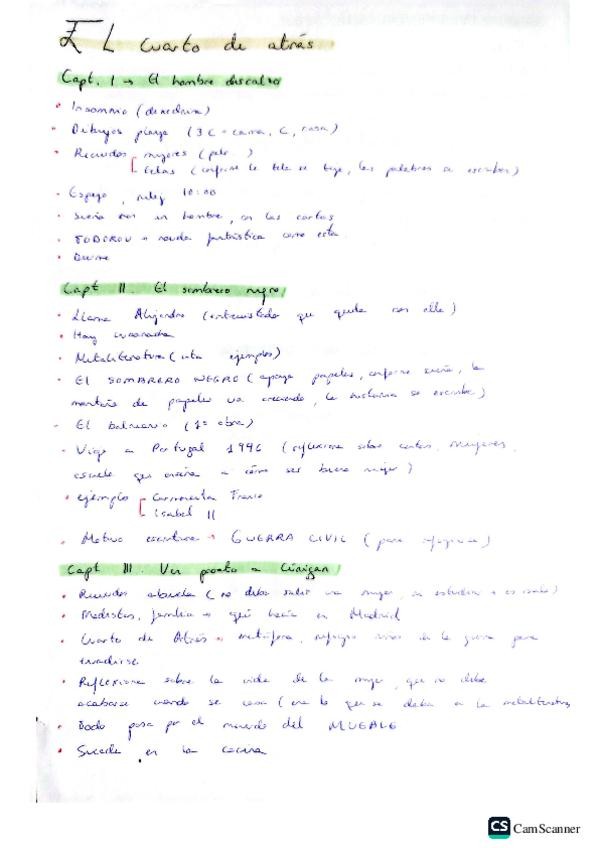 EL cuarto de atrás
Capt. I → El hombre descalzo
• Insomnio (duermevela)
• Dibujos playa (3 C = cama, C, casa)
• Recuerdos mujeres (pelo )
telas (conforme la tela se teje, las palabras a escribir)
• Espejo, reloj 10:00
• sueña con un hombre, en las cartas
• TODOROV → novela fantástica como esta
• Duerme
Capt II. El sombrero negro
• Llama Alejandro (entrevistador que queda con ella)
• Hay cucaracha
• Metaliteratura (cita ejemplos)
• El SOMBRERO NEGRO (apoya papeles, conforme sueña, la
montaña de papeles va creciendo, la historia se escribe)
• El balneario (1ª obra)
• Viaje a Portugal 1946 (reflexiona sobre cartas, mujeres,
escuela que enseña a cómo ser buena mujer)
• ejemplos Carmencita Franco
Isabel II
• Motivo escritura → GUERRA CIVIL (para refugiarse)
Capt III. Ven pronto a Cúnigan
• Recuerdos abuela (no debe salir una mujer, ni estudiar)
• Modistas, familia → qué hacía en Madrid
• Cuarto de Atrás → metáfora, refugio niños de la guerra para
evadirse
• Reflexiona sobre la vida de la mujer, que no debe
acabarse cuando se casa (era lo que se debía a la metaliteratura
• Todo pasa por el recuerdo del MUEBLE
• Sucede en la cocina
CS CamScanner